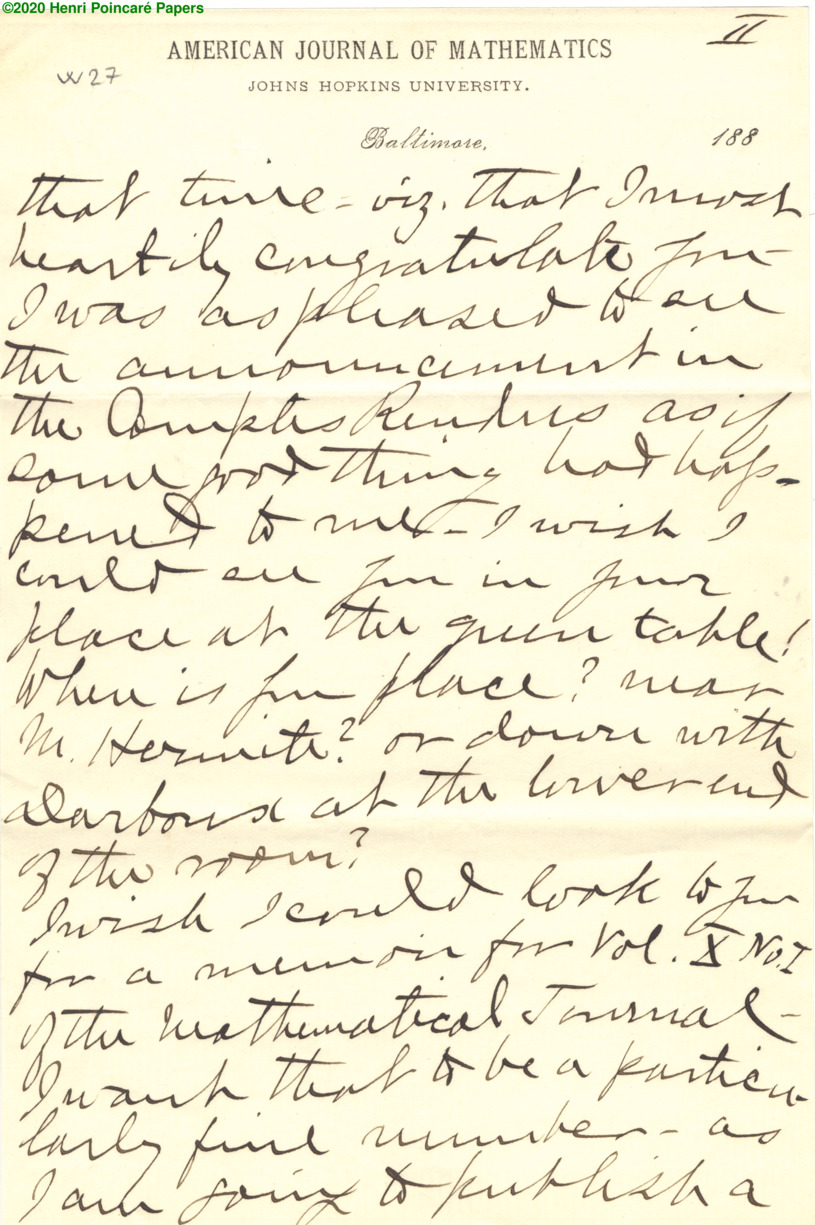 ©2020 Henri Poincaré Papers
II
AMERICAN JOURNAL OF MATHEMATICS
W27
JOHNS HOPKINS UNIVERSITY.
Baltimore, 188
that time - viz. that I most
heartily congratulate you -
I was as pleased to see
the announcement in
the Comptes Rendus as if
some good thing had hap-
pened to me - I wish I
could see you in your
place at the green table!
Where is your place? near
M. Hermite? or down with
Darboux at the lower end
of the room?
I wish I could look to you
for a memoir for Vol. X No. I
of the Mathematical Journal -
I want that to be a particu-
larly fine number - as
I am going to publish a